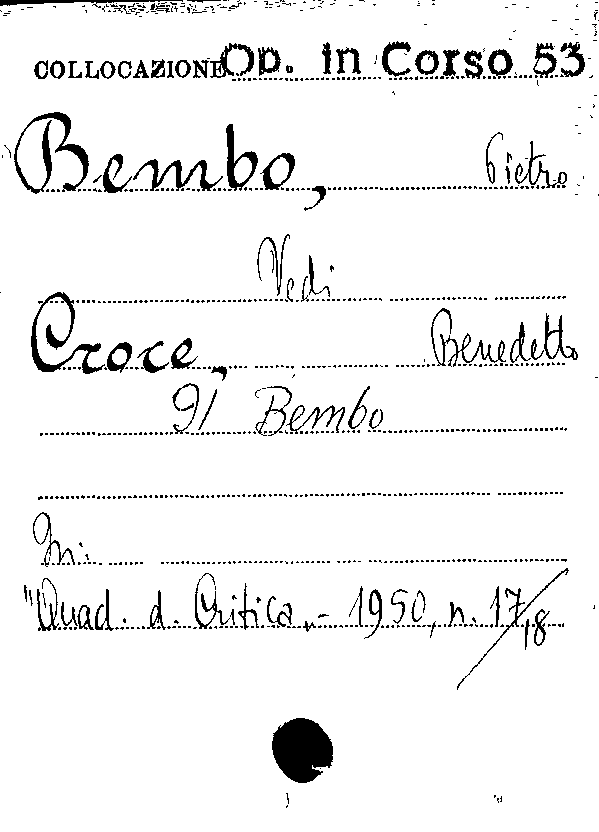 COLLOCAZIONE Op. in Corso 53
Bembo, Pietro
Vedi
Croce, Benedetto
Il Bembo
In:
"Quad. d. Critica„ - 1950, n. 17/18